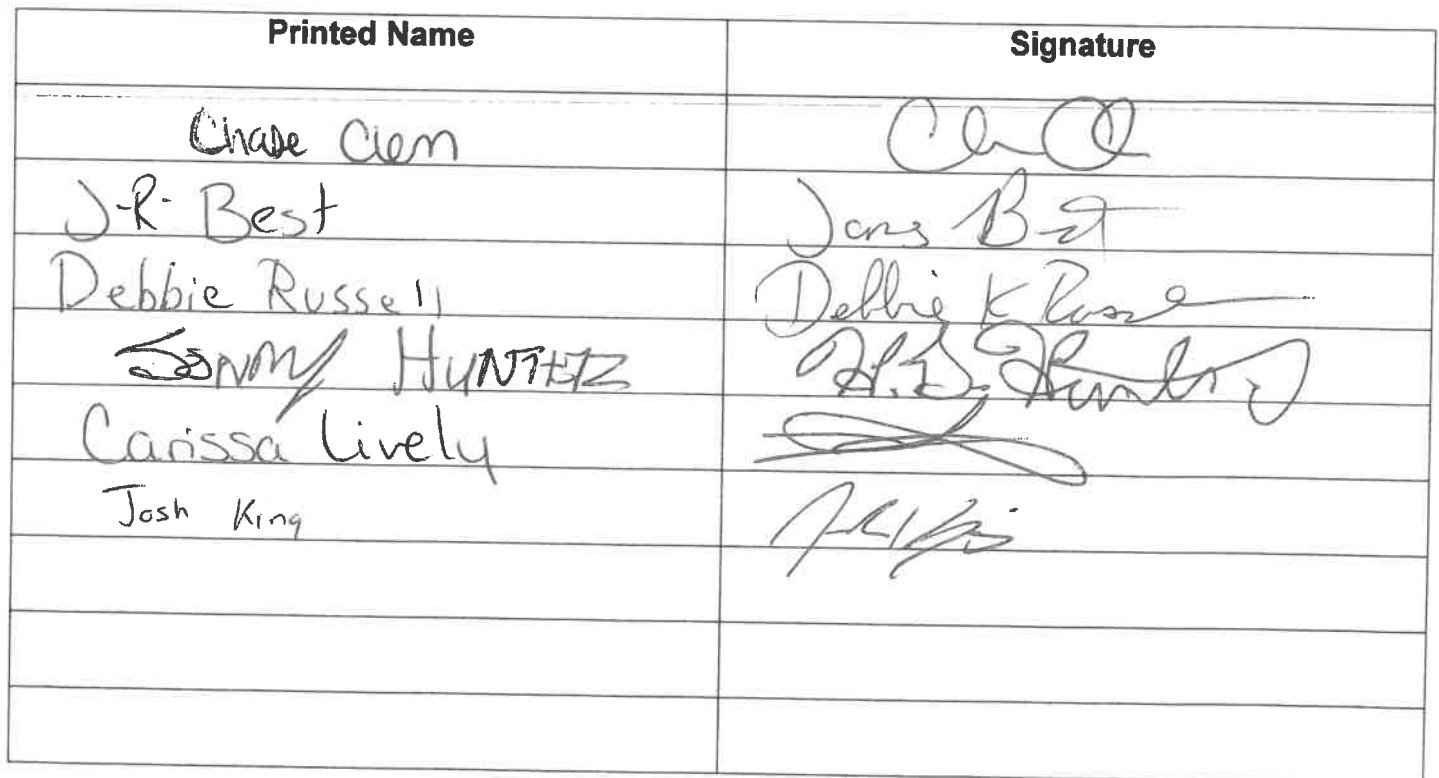 Printed Name Signature
Chase Clem
J.R. Best James Best
Debbie Russell Debbie K Russell
Sonny Hunter H.D. Hunter
Carissa Lively
Josh King